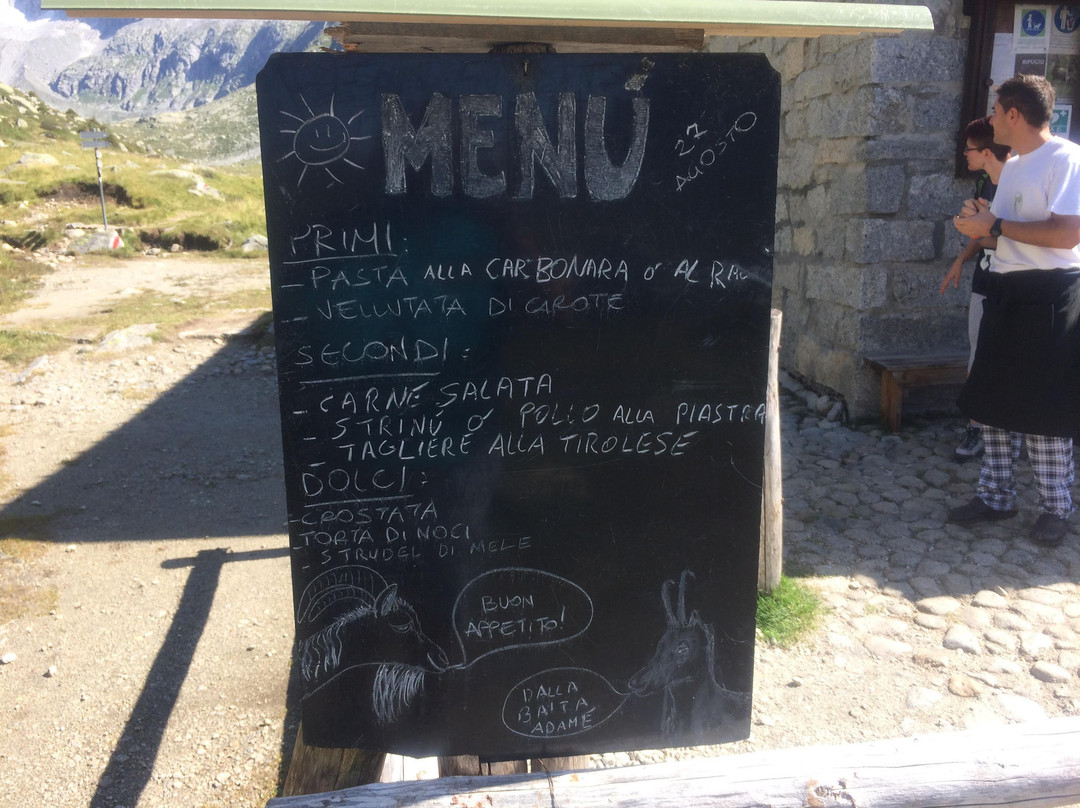 MENÚ
27
AGOSTO
PRIMI:
- PASTA ALLA CARBONARA O' AL RAG
- VELLUTATA DI CAROTE
SECONDI:
- CARNE SALATA
- STRINÚ O' POLLO ALLA PIASTRA
- TAGLIERE ALLA TIROLESE
DOLCI:
- CROSTATA
- TORTA DI NOCI
- STRUDEL DI MELE
BUON
APPETITO!
DALLA
BAITA
ADAMÉ